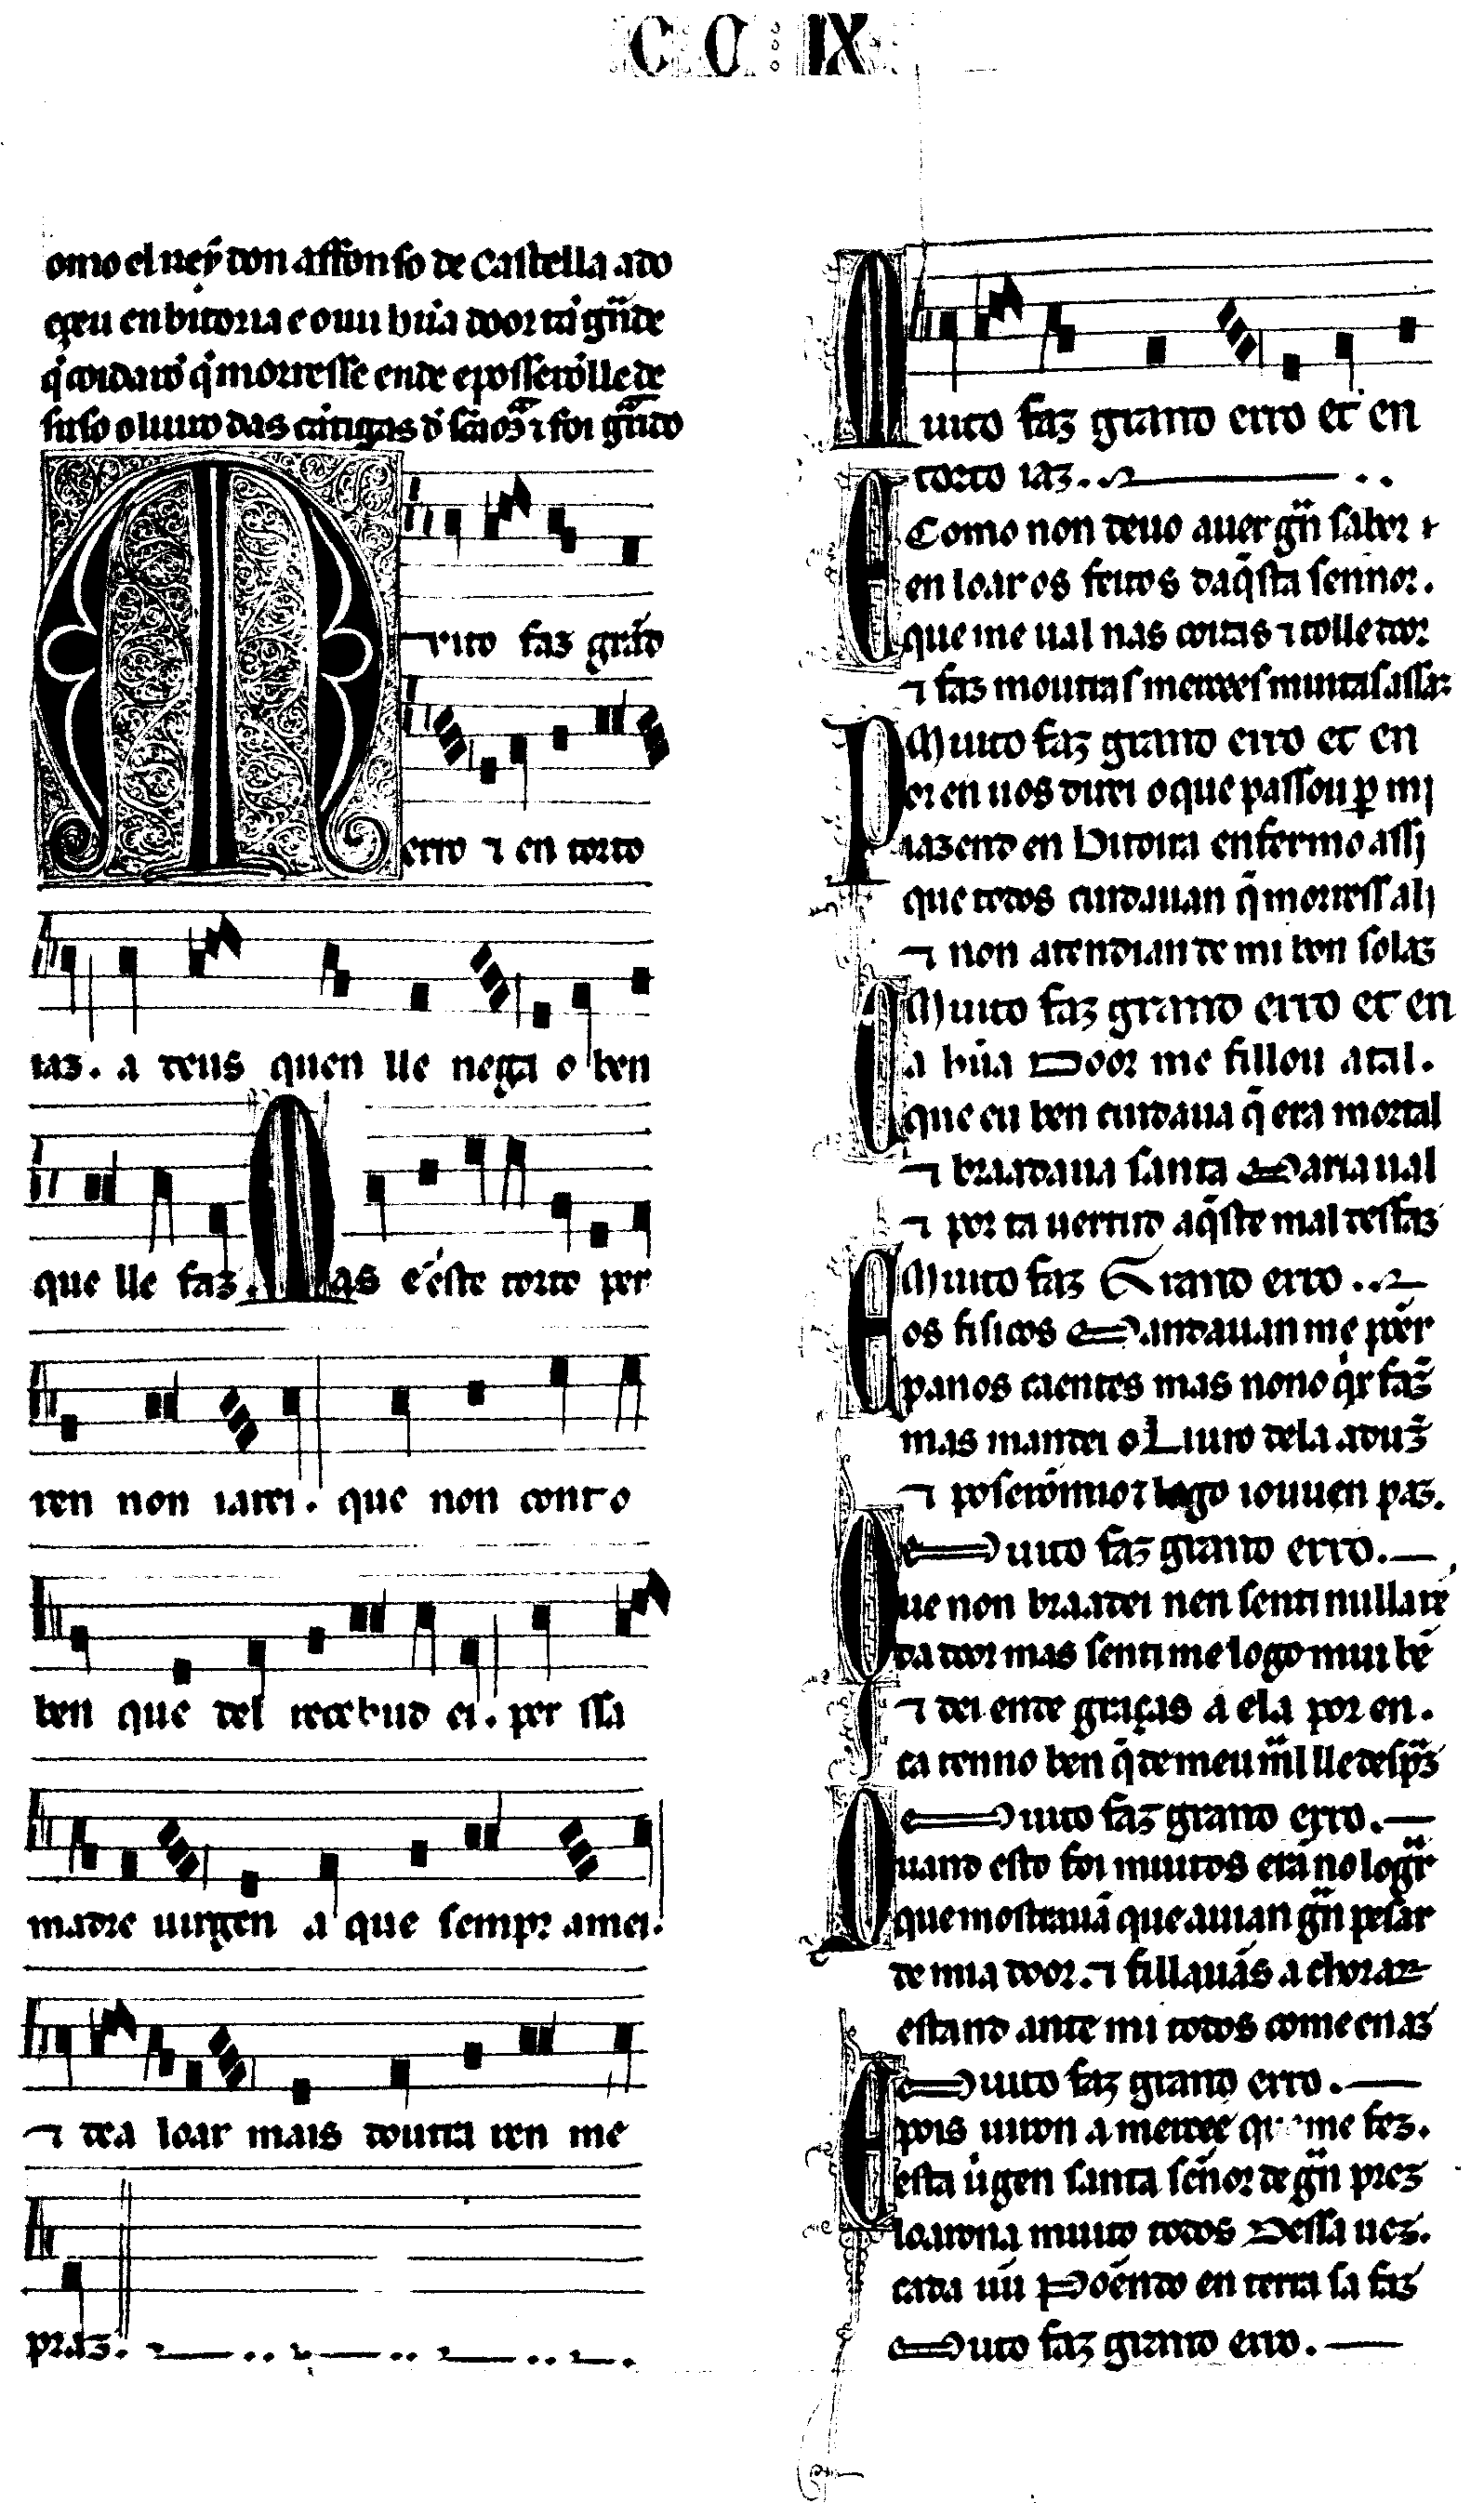 CC:IX
omo el rey don affonso de Castella ado
eçeu en bitoria e ouu hũa door tã gñde
q̇ coidarõ q̇ morresse ende e posserõlle de
suso o liuro das cãtigas dẽ s̃ca m̃ ⁊ foi g̃rido
Muito faz grãd
erro ⁊ en torto
iaz. a deus quen lle nega o ben
que lle faz. Mas e'este torto per
ren non iarei. que non cont o
ben que del recebud ei. per ssa
madre uirgen a que sempr amei.
⁊ dea loar mais doutra ren me
praz.
Muito faz grand erro et en
torto iaz.
E Como non deuo auer gñ sabor
en loar os feitos daq̃sta sennor.
que me ual nas coitas ⁊ tolle door
⁊ faz mouitas merçees muitas assaz
Muito faz grand erro et en
Por en uos direi o que passou ꝑ mi
iazend en Bitoira enfermo assi
que todos cuidauan q̃ morress ali
⁊ non atendian de mi bon solaz
Muito faz grand erro et en
Ca hũa Door me fillou atal.
que eu ben cuidaua q̃ era mortal
⁊ braadaua santa Maria ual
⁊ por ta uertud aq̃ste mal desfaz
Muito faz Grand erro..
E os fisicos Mandauan me põer
panos caentes mas nono q̇x faz̃
mas mandei o Liuro dela aduz̃
⁊ poserõmio ⁊ logo iouuen paz.
Muito faz grand erro.
Que non braadei nen senti nulla rẽ
da door mas senti me logo mui bẽ
⁊ dei ende graças a ela por en.
ca tenno ben q̃ de meu m̃l lle desp̃z
Muito faz grand erro.
Quand esto foi muitos erã no log̃r
que mostrauã que auian gñ pesar
de mia door. ⁊ fillauãs a chorar
estand ante mi todos come en az
Muito faz grand erro.
E pois uiron a merçee que me fez.
esta ũgen santa señor de gñ prez
loarona muito todos Dessa uez.
cada ũu Põendo en terra sa faz
Muto faz grand erro.